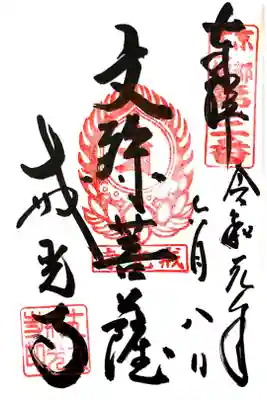 奉拝
京都第三番
令和元年
月八日
文殊菩薩
戒光寺